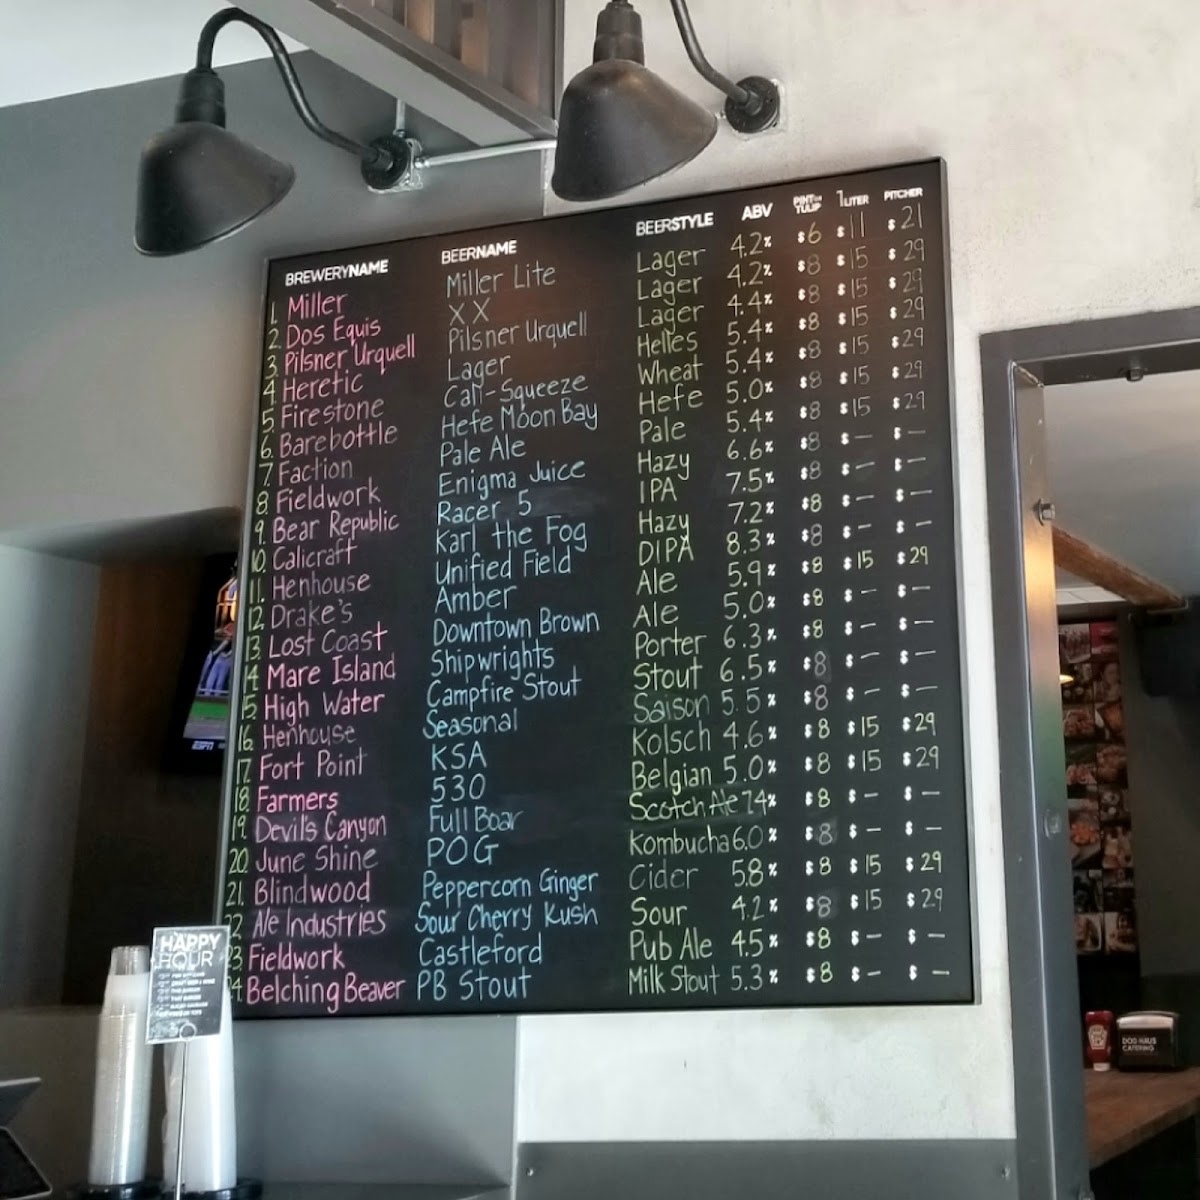 BREWERYNAME BEERNAME BEERSTYLE ABV PINT TULIP 1 LITER PITCHER
1. Miller Miller Lite Lager 4.2% $6 $11 $21
2. Dos Equis XX Lager 4.2% $8 $15 $29
3. Pilsner Urquell Pilsner Urquell Lager 4.4% $8 $15 $29
4. Heretic Lager Helles 5.4% $8 $15 $29
5. Firestone Cali-Squeeze Wheat 5.4% $8 $15 $29
6. Barebottle Hefe Moon Bay Hefe 5.0% $8 $15 $29
7. Faction Pale Ale Pale 5.4% $8 $15 $29
8. Fieldwork Enigma Juice Hazy 6.6% $8 $ — $ —
9. Bear Republic Racer 5 IPA 7.5% $8 $ — $ —
10. Calicraft Karl the Fog Hazy 7.2% $8 $ — $ —
11. Henhouse Unified Field DIPA 8.3% $8 $ — $ —
12. Drake's Amber Ale 5.9% $8 $15 $29
13. Lost Coast Downtown Brown Ale 5.0% $8 $ — $ —
14. Mare Island Shipwrights Porter 6.3% $8 $ — $ —
15. High Water Campfire Stout Stout 6.5% $8 $ — $ —
16. Henhouse Seasonal Saison 5.5% $8 $ — $ —
17. Fort Point KSA Kolsch 4.6% $8 $15 $29
18. Farmers 530 Belgian 5.0% $8 $15 $29
19. Devil's Canyon Full Boar Scotch Ale 7.4% $8 $ — $ —
20. June Shine POG Kombucha 6.0% $8 $ — $ —
21. Blindwood Peppercorn Ginger Cider 5.8% $8 $15 $29
22. Ale Industries Sour Cherry Kush Sour 4.2% $8 $15 $29
23. Fieldwork Castleford Pub Ale 4.5% $8 $ — $ —
24. Belching Beaver PB Stout Milk Stout 5.3% $8 $ — $ —
HAPPY
HOUR
DOG HAUS
CATERING
HEINZ
ESPN